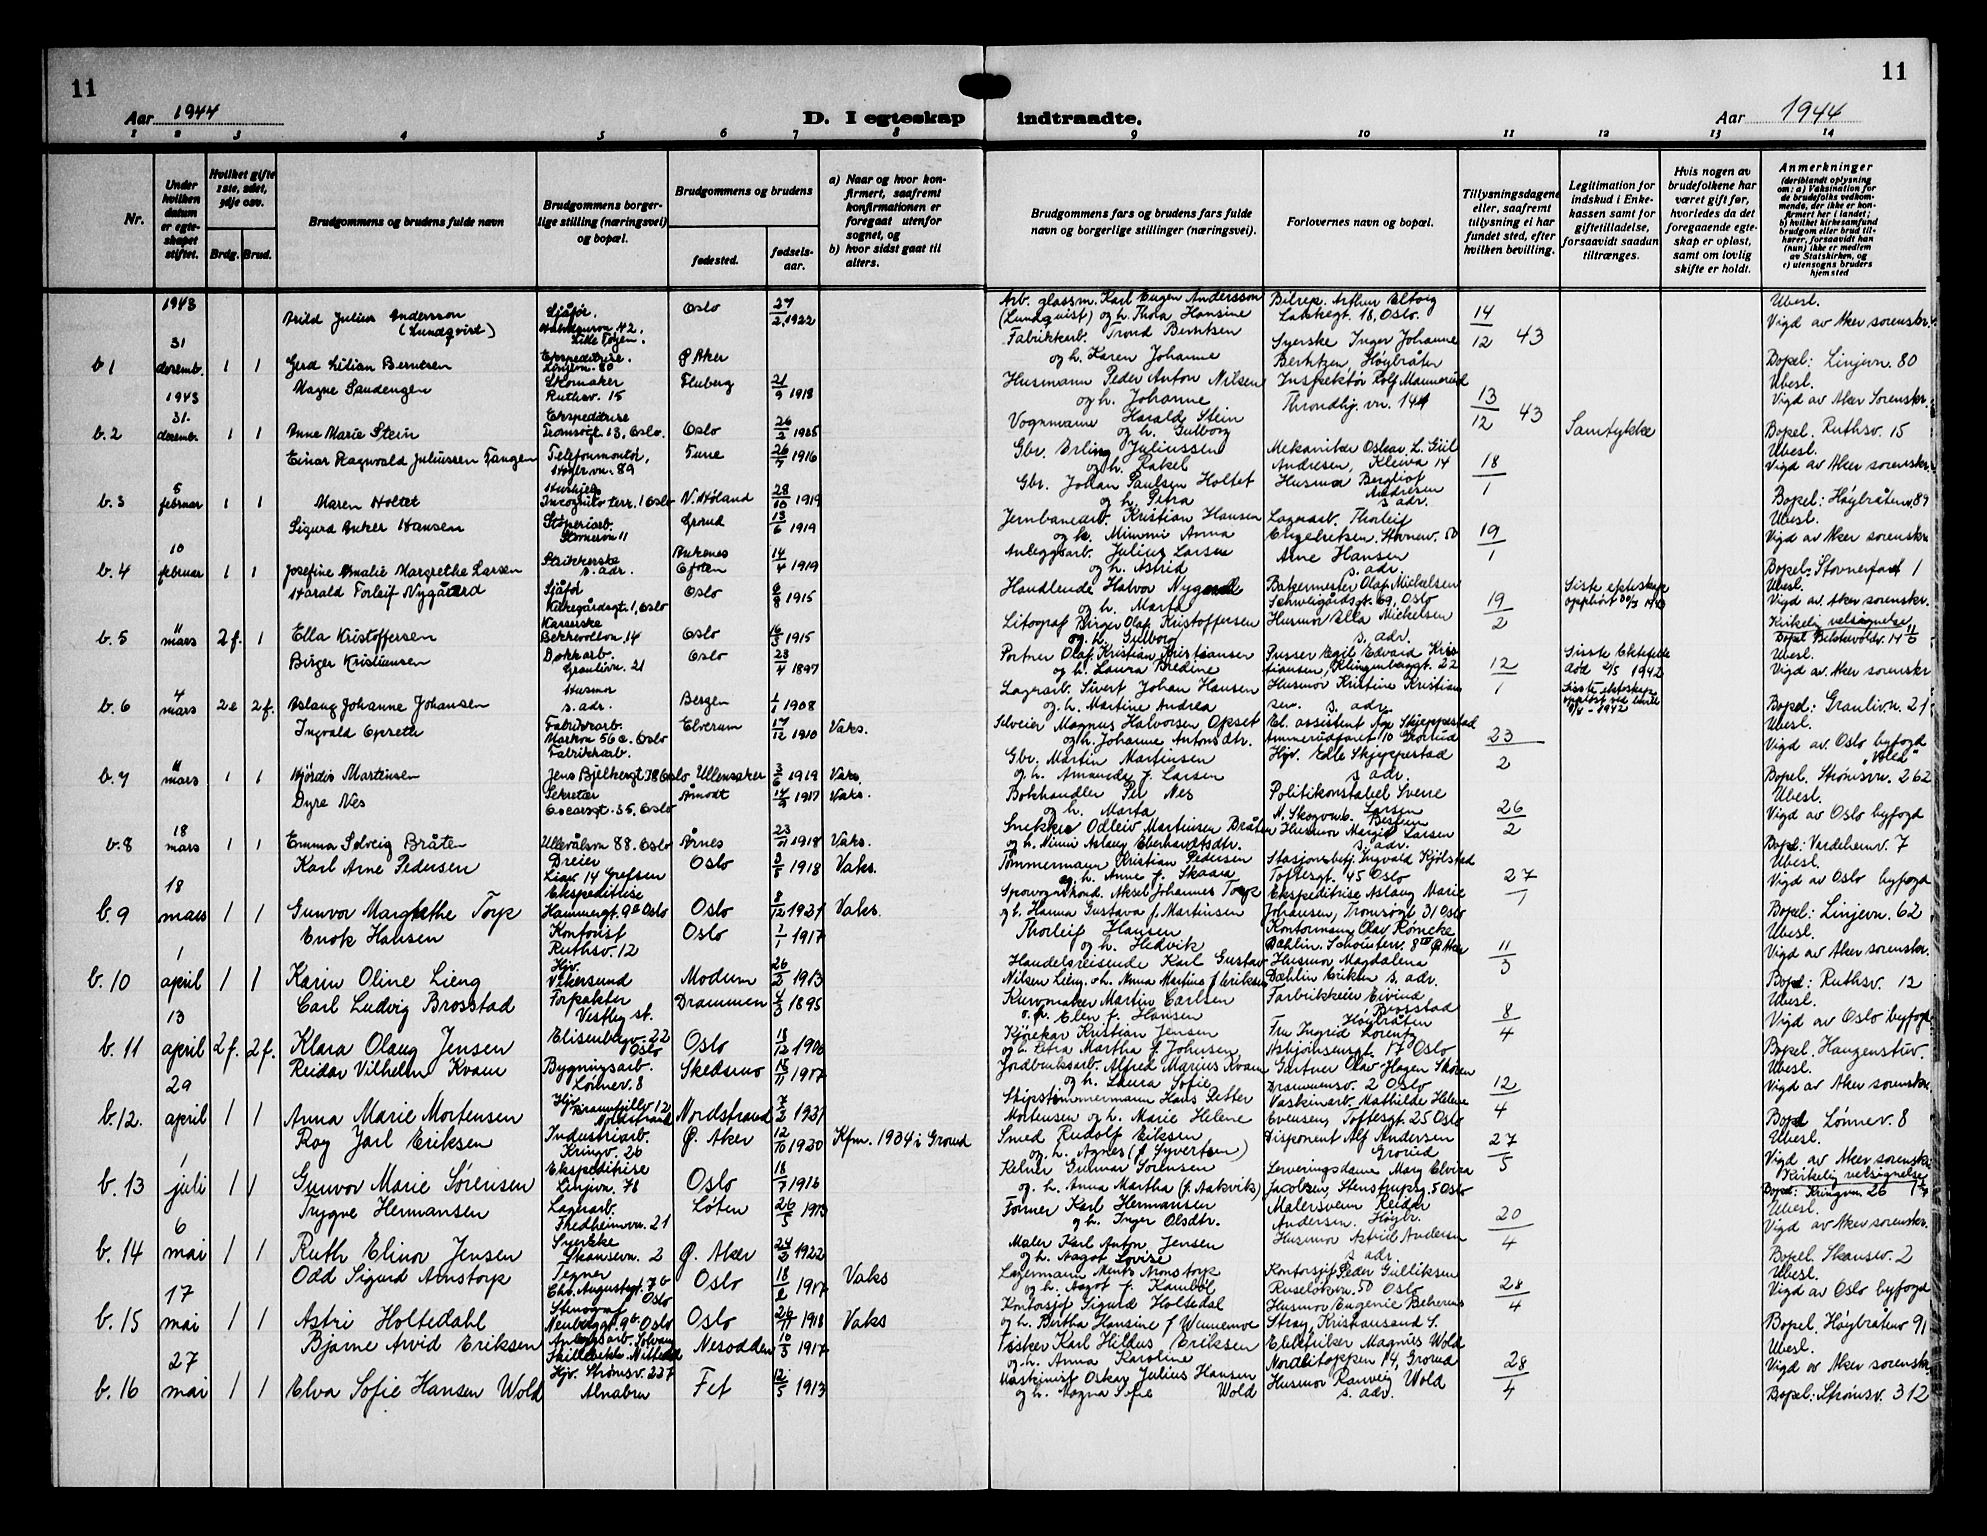 11
11
Aar 1944
D. I egteskap indtraadte.
Aar 1944
1 2 3 4 5 6 7 8 9 10 11 12 13 14
Nr.
Under hvilken datum er egteskapet stiftet.
Hvilket gifte 1ste, 2det, 3dje osv.
Brdg. Brud.
Brudgommens og brudens fulde navn
Brudgommens borgerlige stilling (næringsvei) og bopæl.
Brudgommens og brudens
fødested.
fødselsaar.
a) Naar og hvor konfirmert, saafremt konfirmationen er foregaat utenfor sognet, og
b) hvor sidst gaat til alters.
Brudgommens fars og brudens fars fulde navn og borgerlige stillinger (næringsvei).
Forlovernes navn og bopæl.
Tillysningsdagene eller, saafremt tillysning ei har fundet sted, efter hvilken bevilling.
Legitimation for indskud i Enkekassen samt for giftetilladelse, forsaavidt saadan tiltrænges.
Hvis nogen av brudefolkene har været gift før, hvorledes da det foregaaende egteskap er opløst, samt om lovlig skifte er holdt.
Anmerkninger
(deriblandt oplysning om: a) Vaksination for de brudefolks vedkommende, der ikke er konfirmert her i landet;
b) hvilket kirkesamfund brudgom eller brud tilhører, forsaavidt han (hun) ikke er medlem av Statskirken, og
c) utensogns bruders hjemsted
b 1 1943 31 desemb. 1 1
Arild Julius Andersson (Lundqvist) Sjåfør. Oslo 27/2 1922
Gerd Lilian Berntsen Ekspeditrise. Linjevn. 80 Ø Aker
Arb. glassm. Karl Eugen Andersson (Lundquist) og h. Thola Hansine
Fabrikkarb. Trond Berntsen og h. Karen Johanne
14/12 43
Ubesl. Vigd av Aker sorenskr. Bopel: Linjevn. 80
b. 2 1943 31. desemb. 1 1
Magne Saudengen Skomaker Ruthsv. 15 Fluberg 21/9 1918
Anne Marie Stein Ekspeditrise Tromsøgt 13, Oslo. Oslo
Husmann Peder Anton Nilsen og h. Johanne
Vognmann Harald Stein og h. Gulborg
13/12 43
Samtykke
Ubesl. Vigd av Aker Sorenskr. Bopel. Ruthsv. 15
b. 3 5 februar 1 1
Einar Ragnvald Juliussen Tangen Telefonmontør, 26/7 1916
Maren Holtet Incognito terr. 1 Oslo N. Høland 28/10 1919
Gbr. Erling Juliussen og h. Rakel
Gbr. Johan Paulsen Holtet og h. Petra
18/1
Ubesl. Vigd av Aker sorenskr. Bopel: Høybråtenv. 89
b. 4 10 februar 1 1
Sigurd Anker Hansen Grorud 13/6 1919
Josefine Amalie Margrethe Larsen Strikkerske s. adr. Ankenes 14/4 1919
Jernbanearb. Kristian Hansen og h. Mimmi Anna
Anleggsarb. Julius Larsen og h. Astrid
Lagerarb. Thorleif Engebretsen. Stovnerv. 50
Arne Hansen s. adr.
19/1
Ubesl. Vigd av Aker sorenskr.
b. 5 11 mars 2 f. 1
Harald Torleif Nygaard Sjåfør Kirkegårdsgt. 1, Oslo Oslo 6/8 1915
Ella Kristoffersen Bekkevollvn. 14 Oslo 16/3 1915
Handlende Halvor Nygaard og h. Marta
Litograf Birger Olaf Kristoffersen og h. Gulborg
Bakermester Olaf Mickelsen Schweigårdsgt. 69, Oslo
Husmor Ella Mickelsen s. adr.
19/2
Siste ekteskap opphørt
Ubesl. Vigd av Aker sorenskr. Kirkelig velsignelse
b. 6 4 mars 2 e 2 f.
Birger Kristiansen Dokkarb. Granlivn. 21 Oslo 23/4 1897
Aslaug Johanne Johansen Husmor s. adr. Bergen 1/1 1908
Portner Olaf Kristian Kristiansen og h. Laura Bredine
Lagerarb. Sivert Johan Hansen og h. Martine Andrea
Pusser Egil Edvard Kristiansen, Klingenberggt. 22
Husmor Kristine Kristiansen. s. adr.
12/1
Siste Ektefelle død 2/5 1942
Ubesl. Vigd av Aker sorenskr. Bopel: Granlivn. 21
b. 7 11 mars 1 1
Ingvald Opseth Fabrikkarb. Markvn 56 c. Oslo Elverum 17/12 1910 Vaks.
Hjørdis Martinsen Fabrikkarb. Jens Bjelkesgt. 78 Oslo Ullensaker 3/6 1919 Vaks.
Selveier Magnus Halvorsen Opset og h. Johanne Antonsdtr.
Gbr. Martin Martinsen og h. Amanda f. Larsen
El. assistent Age Skjeppestad Ammerudfaret 10 Grorud
Hjv. Edle Skjeppestad s. adr.
23/2
Ubesl. Vigd av Oslo byfogd Bopel. Strømsv. 262
b. 8 18 mars 1 1
Dyre Nes Sekretær Oscarsgt. 35, Oslo Åmodt 1917 Vaks.
Emma Solveig Bråten Ullevålsvn 88. Oslo Årnes 23/11 1918 Vaks.
Bokhandler Per Nes og h. Marta
Snekker Odleiv Martinsen Bråten og h. Ninni Aslaug Eberhardtsdtr.
Politikonstabel Sverre Larsen
Husmor Margit Larsen s. adr.
26/2
Ubesl. Vigd av Oslo byfogd Bopl: Vardeheimv. 7
b. 9 18 mars 1 1
Karl Arne Pedersen Dreier Liav. 14 Grefsen Oslo 3/5 1918 Vaks.
Gunvor Margrethe Torp Ekspeditrise Hammergt. 9 Oslo Oslo 8/12 1921 Vaks.
Tømmermann Kristian Pedersen og h. Anne f. Skaara
Sporvognskond. Aksel Johannes Torp og h. Hanna Gustava f. Martinsen
Stasjonsbetj. Ingvald Kjølstad Toftesgt. 45 Oslo
Ekspeditrise Aslaug Marie Johansen, Tromsøgt 31 Oslo
27/1
Ubesl. Vigd av Oslo byfogd Bopel: Linjevn. 62
b. 10 1 april 1 1
Enok Hansen Kontorist Ruthsv. 12 Oslo 1/1 1917
Karin Oline Lieng Hjv. Vikersund Modum 26/2 1913
Thorleif Hansen og h. Hedvik
Handelsreisende Karl Gustav Nilsen Lieng. og h. Anna Martine f. Eriksen
Kontormann Olav Rømcke
Husmor Magdalena
11/3
Ubesl. Vigd av Aker sorenskr. Bopel: Ruthsv. 12
b. 11 13 april 2 f. 2 f.
Carl Ludvig Brosstad Forpakter Vestby st. Drammen 4/3 1895
Klara Olaug Jensen Elisenbergv. 22 Oslo Oslo 18/12 1906
Kurvmaker Martin Carlsen o. h. Elen f. Hansen
Kjørekar Kristian Jensen og h. Petra Martha f. Johnsen
Eivind Brosstad Høybråten
Fru Ingrid Lorentz Asbjørnsensgt. 17 Oslo
8/4
Ubesl. Vigd av Oslo byfogd Bopel. Haugenstuv.
b. 12. 29 april 1 1
Reidar Vilhelm Kvam Bygningsarb. Lønnev. 8 Skedsmo 1917
Anna Marie Mortensen Hjv. Nordstrand 7/2 1921
Jordbruksarb. Alfred Marius Kvam og h. Laura Sofie
Skipstømmermann Hans Petter Mortensen og h. Marie Helene
Gartner Olav Hagen Skåren Drammensv. 2 Oslo
Vaskinarb. Mathilde Helene Evensen, Toftesgt. 25 Oslo
12/4
Ubesl. Vigd av Aker sorenskr. Bopel Lønnev. 8
b. 13 1 juli 1 1
Roy Jarl Eriksen Industriarb. Kringv. 26 Ø. Aker 12/10 1920 Kfm. 1934 i Grorud
Gunvor Marie Sørensen Ekspeditrise Linjevn. 78 Oslo 1916
Smed Rudolf Eriksen og h. Agnes (f Syvertsen)
Kelner Gunnar Sørensen og h. Anna Martha (f. Aakvik)
Disponent Alf Andersen Grorud
Serveringsdame Mary Elvira Jacobsen, Stenstrupsg. 5 Oslo
27/5
Ubesl. Vigd av Aker sorenskr. Kirkelig velsignelse Bopel: Kringvn. 26
b. 14 6 mai 1 1
Trygve Hermansen Lagerarb. Fredheimvn. 21 Løten 26/5 1913
Ruth Elinor Jensen Syerske Skansevn. 2 Ø. Aker 1922
Former Karl Hermansen og h. Inger Olsdtr.
Maler Karl Anton Jensen og h. Aagot Lovise
Malersvenn Reidar Andersen. Høybr.
Husmor Astrid Andersen s. adr.
20/4
Ubesl. Vigd av Aker sorenskr. Bopel Skansev. 2
b. 15 17 mai 1 1
Odd Sigurd Arnstorp Tegner Chr. Augustsgt. 7 b Oslo Oslo 18/2 1917 Vaks
Astri Holtedahl Stenograf Neuberggt. 9 b Oslo Oslo 1918 Vaks
Lagermann Ments Arnstorp og h. Aagot f. Kambøl
Kontorsjef Sigurd Holtedal og h. Bertha Hansine f Wennemoe
Kontorsjef Peder Gulliksen Ruseløkvn. 50 Oslo
Husmor Eugenie Behrens Stray, Kristiansand S.
28/4
Ubesl. Vigd av Oslo byfogd Bopel. Høybråtenv 91
b. 16 27 mai 1 1
Bjarne Arvid Eriksen Nesodden 10/3 1917
Elva Sofie Hansen Wold Hjv. Strømsv. 227 Alnabru Fet 12/5 1913
Fisker Karl Hildus Eriksen og h. Anna Karoline
Maskinist Oskar Julius Hansen Wold og h. Magna Sofie
Elektriker Magnus Wold Nordlitoppen 14, Grorud
Husmor Ranveig Wold s. adr.
28/4
Ubesl. Vigd av Aker sorenskr. Bopel: Strømsv. 312